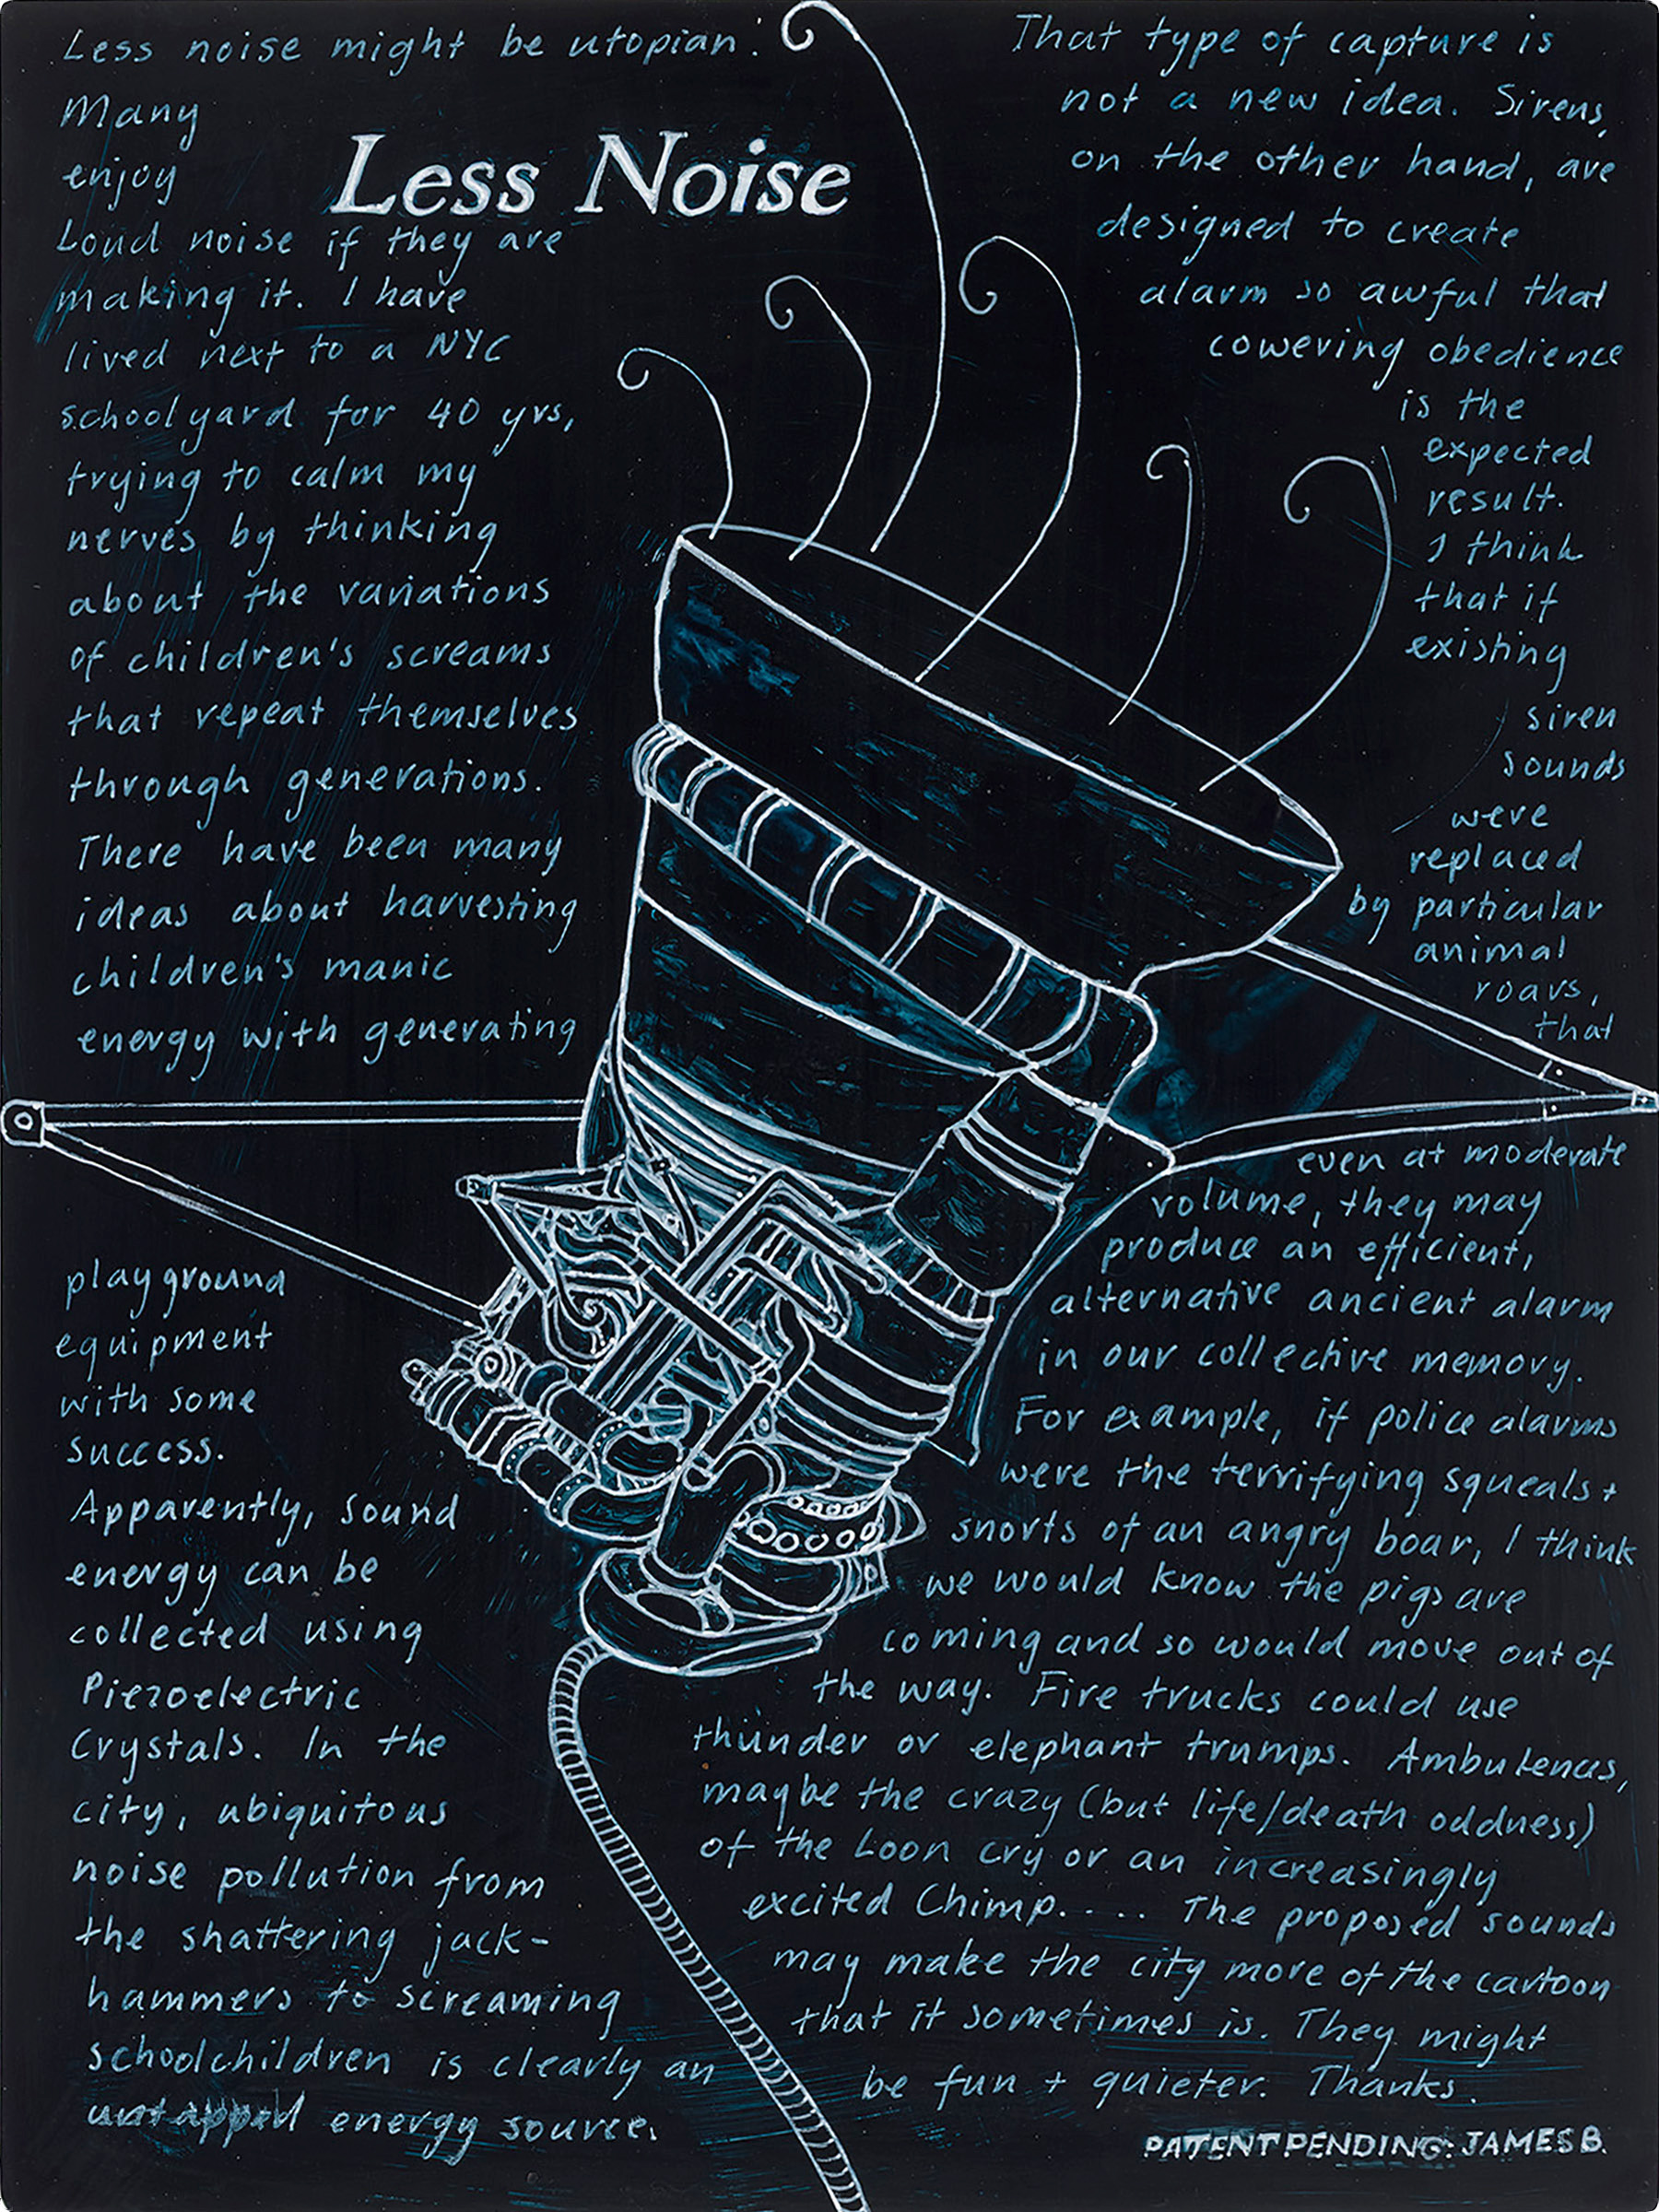 Less Noise
Less noise might be utopian.
Many
enjoy
Loud noise if they are
making it. I have
lived next to a NYC
schoolyard for 40 yrs,
trying to calm my
nerves by thinking
about the variations
of children's screams
that repeat themselves
through generations.
There have been many
ideas about harvesting
children's manic
energy with generating
playground
equipment
with some
success.
Apparently, sound
energy can be
collected using
Piezoelectric
Crystals. In the
city, ubiquitous
noise pollution from
the shattering jack-
hammers to screaming
schoolchildren is clearly an
untapped energy source.
That type of capture is
not a new idea. Sirens,
on the other hand, are
designed to create
alarm so awful that
cowering obedience
is the
expected
result.
I think
that if
existing
siren
sounds
were
replaced
by particular
animal
roars,
that
even at moderate
volume, they may
produce an efficient,
alternative ancient alarm
in our collective memory.
For example, if police alarms
were the terrifying squeals +
snorts of an angry boar, I think
we would know the pigs are
coming and so would move out of
the way. Fire trucks could use
thunder or elephant trumps. Ambulences,
maybe the crazy (but life/death oddness)
of the Loon cry or an increasingly
excited Chimp..... The proposed sounds
may make the city more of the cartoon
that it sometimes is. They might
be fun + quieter. Thanks.
PATENT PENDING: JAMES B.